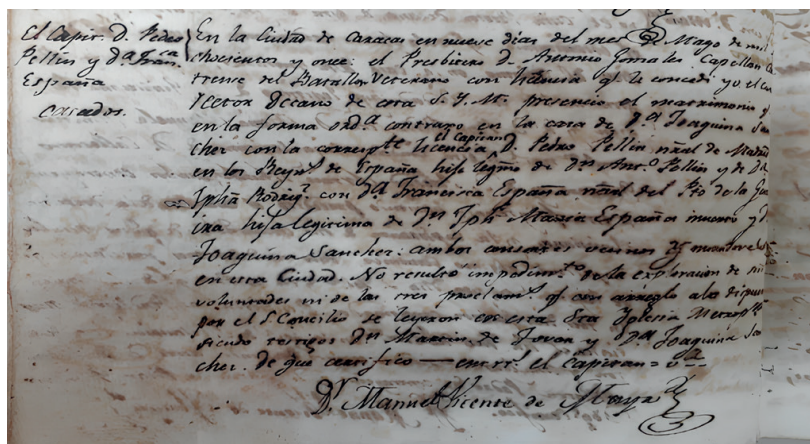 El Capn. D. Pedro
Pellin y da. Franca.
España
casados.
En la Ciudad de Caracas en nueve dias del mes de Mayo de mil
ochocientos y once: el Presbitero D. Antonio Gonzales Capellan
trense del Batallon Veterano con licencia qe. le concedi yo el cu
Rector Decano de esta S. Y. M. presencio el matrimonio qe
en la forma orda. contraxo en la casa de Da. Joaquina San
chez con la correspte. licencia el Capitan D. Pedro Pellin natal de
en los Reyns. de España hijo legmo. de Dn. Anto. Pellin y de Da.
Jpha. Rodrigz. con Da. Francisca España natal del Pto de la Gua
ira hija legitima de Dn. Jph. Maria España muerto y Da.
Joaquina Sanchez: ambos consortes vecinos
en esta Ciudad. No resultó impedimto. de la exploracion de sus
voluntades ni de las tres proclams. qe. con arreglo a lo dispuesto
por el S. Concilio se leyeron en esta Sta Yglesia Metropna.
siendo testigos Dn. Martin de Tovar y Da. Joaquina San
chez. de que certifico — enterr. el Capitan = v
Dr. Manuel Vicente de Maya